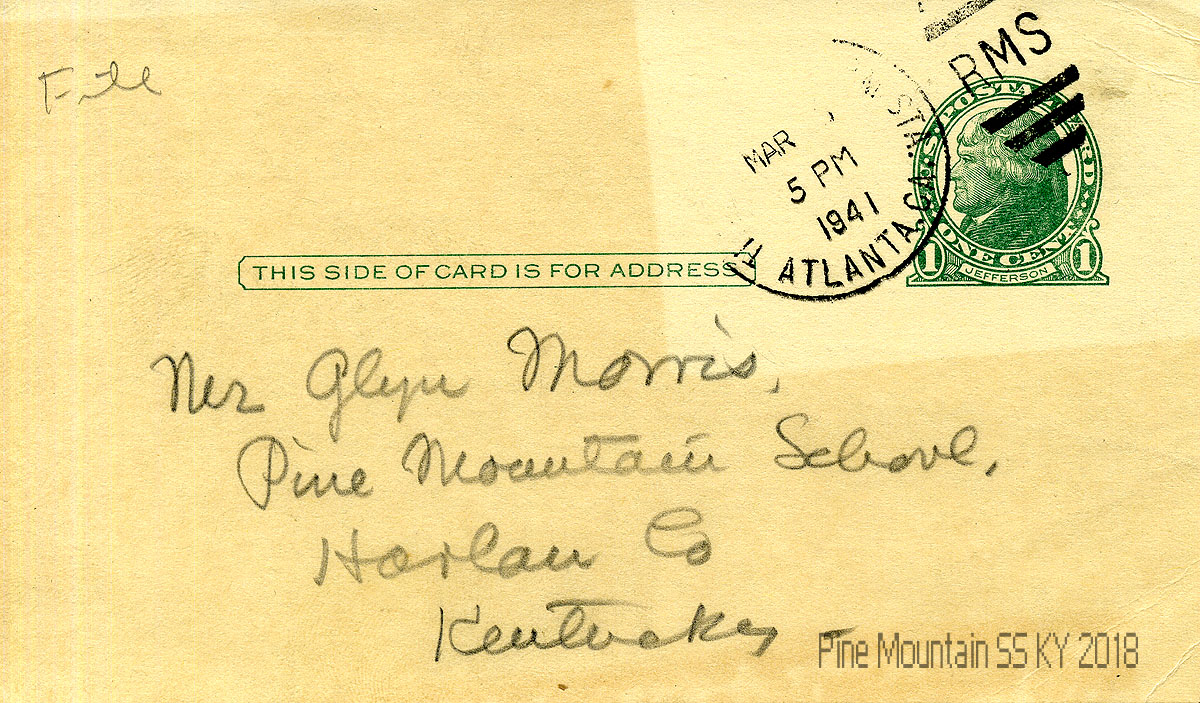 File
RMS
STA.
MAR
5 PM
1941
ATLANTA, GA.
U.S. POSTAL CARD
ONE CENT
1 JEFFERSON 1
THIS SIDE OF CARD IS FOR ADDRESS
Mr Glyn Morris,
Pine Mountain School,
Harlan Co
Kentucky -
Pine Mountain SS KY 2018